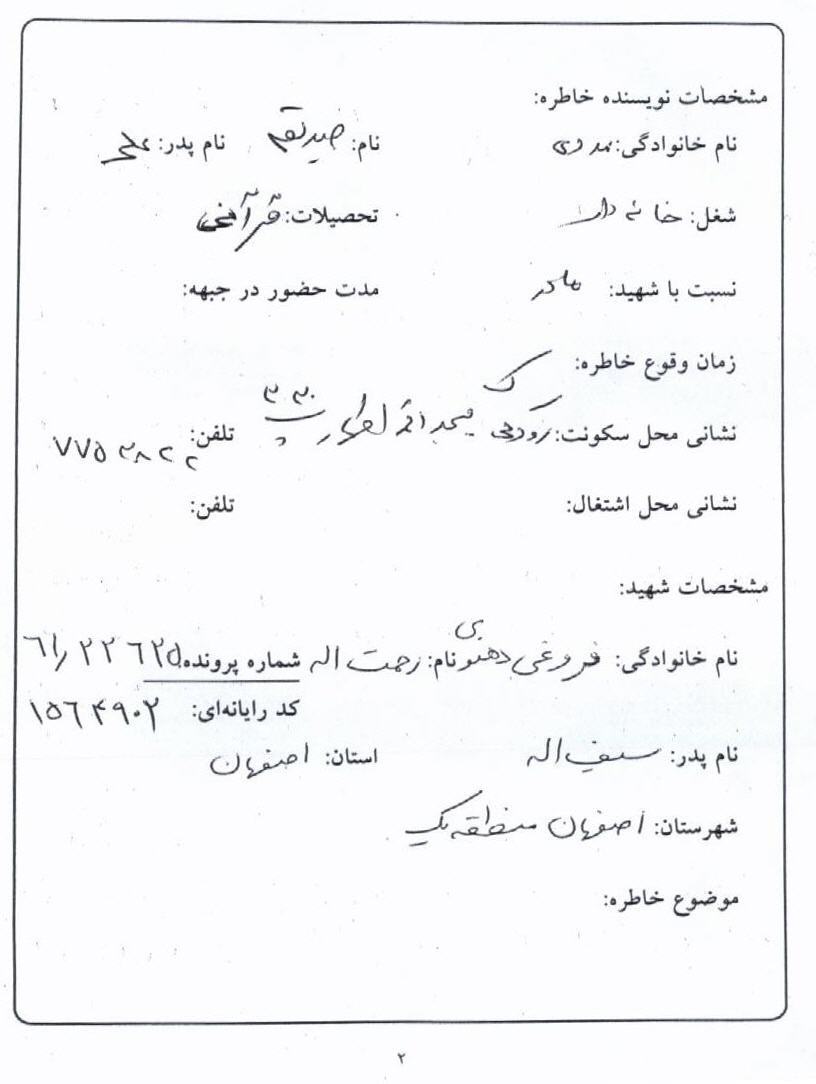 مشخصات نویسنده خاطره:
نام خانوادگی: مهدوی نام: صدیقه نام پدر: علی
شغل: خانه دار تحصیلات: قرآنی
نسبت با شهید: مادر مدت حضور در جبهه:
زمان وقوع خاطره:
نشانی محل سکونت: پ ۳۳۰ تلفن: ۷۷۵۳۸۲۲
نشانی محل اشتغال: تلفن:
مشخصات شهید:
نام خانوادگی: فروغی دهنوی نام: رحمت اله شماره پرونده: ۶۱/۲۲۶۲۵
کد رایانه‌ای: ۱۵۶۴۹۰۲
نام پدر: سیف اله استان: اصفهان
شهرستان: اصفهان منطقه یک
موضوع خاطره:
۲